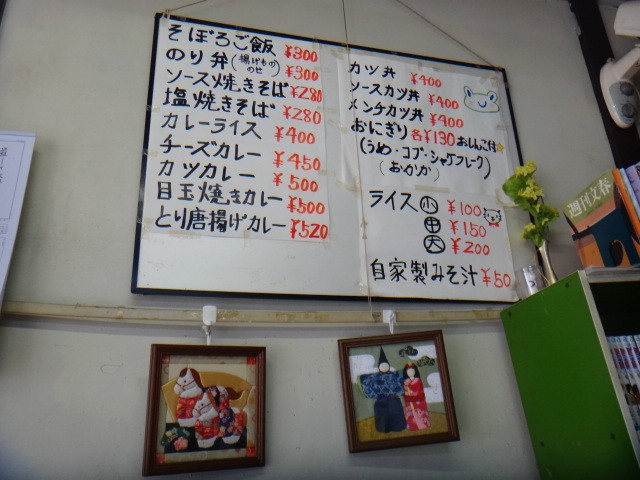 そぼろご飯 ¥300
のり弁(揚げもののせ) ¥300
ソース焼きそば ¥280
塩焼きそば ¥280
カレーライス ¥400
チーズカレー ¥450
カツカレー ¥500
目玉焼きカレー ¥500
とり唐揚げカレー ¥520
カツ丼 ¥400
ソースカツ丼 ¥400
メンチカツ丼 ¥400
おにぎり各¥130 おしんこ付
(うめ・コブ・シャケフレーク)
(おかか)
ライス 小 ¥100
中 ¥150
大 ¥200
自家製みそ汁 ¥50
週刊文春